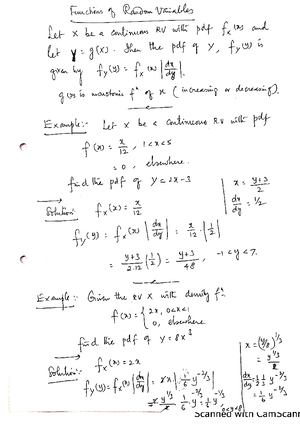 Functions of Random Variables
Let X be a continuous RV with pdf f_X(x) and
let Y = g(X). Then the pdf of Y, f_Y(y) is
given by f_Y(y) = f_X(x) |dx/dy|.
g(x) is monotonic fⁿ of x (increasing or decreasing).
Example:- Let X be a continuous R.V with pdf
f(x) = x/12, 1<x<5
= 0, elsewhere.
find the pdf of Y = 2X-3
Solution:- f_X(x) = x/12
x = (y+3)/2
dx/dy = 1/2
f_Y(y) = f_X(x) |dx/dy| = x/12 · |1/2|
= (y+3)/(2·12) (1/2) = (y+3)/48, -1<y<7.
Example:- Given the RV X with density fⁿ
f(x) = { 2x, 0<x<1
0, elsewhere
find the pdf of Y = 8X³
Solution:- f_X(x) = 2x
x = (y/8)^{1/3}
= y^{1/3}/2
dx/dy = 1/2 · 1/3 y^{-2/3}
= 1/6 y^{-2/3}
f_Y(y) = f_X(x) |dx/dy| = 2x | 1/6 y^{-2/3}
y^{1/3} · 1/6 y^{-2/3} = 1/6 y^{-1/3}
0<y<8
Scanned with CamScann